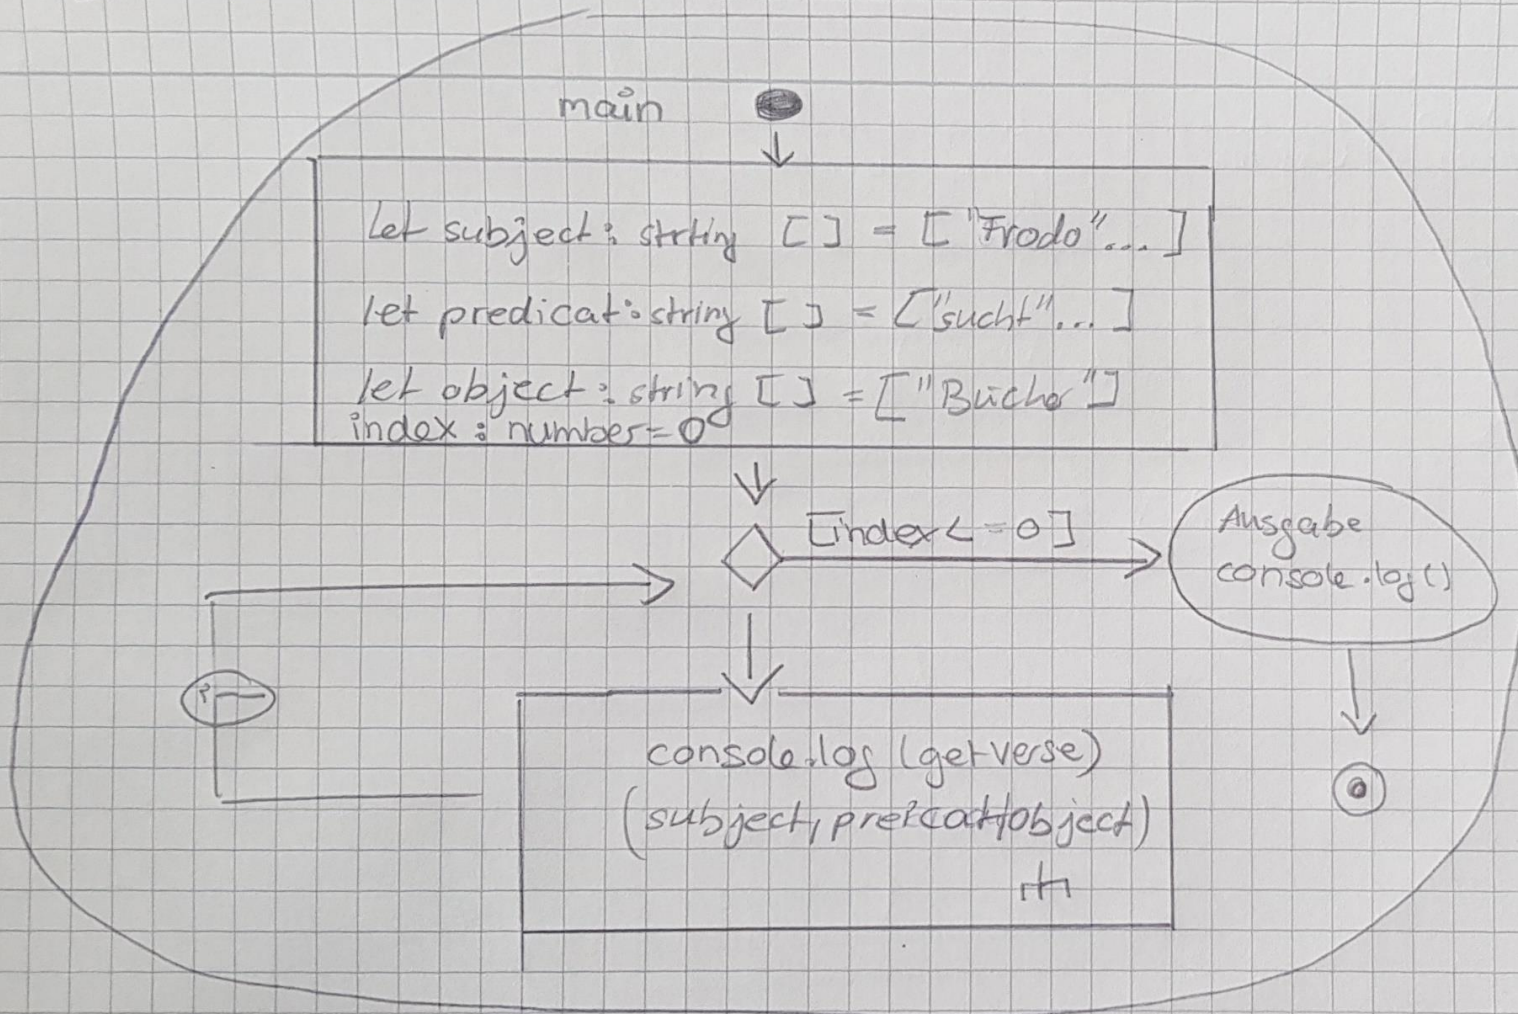 main
let subject: string [ ] = ["Frodo"...]
let predicat: string [ ] = ["sucht"...]
let object: string [ ] = ["Bücher"]
index: number=0
[index<=0]
Ausgabe
console.log()
?
console.log (getverse)
(subject, preicat/object)